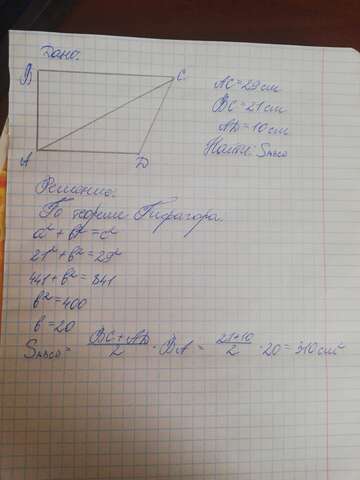 Дано:
B
C
A
D
AC=29см
BC=21см
AD=10см
Найти: SABCD
Решение:
По теореме Пифагора
a²+b²=c²
21²+b²=29²
441+b²=841
b²=400
b=20
SABCD = BC+AD/2 · BA = 21+10/2 · 20=310см²